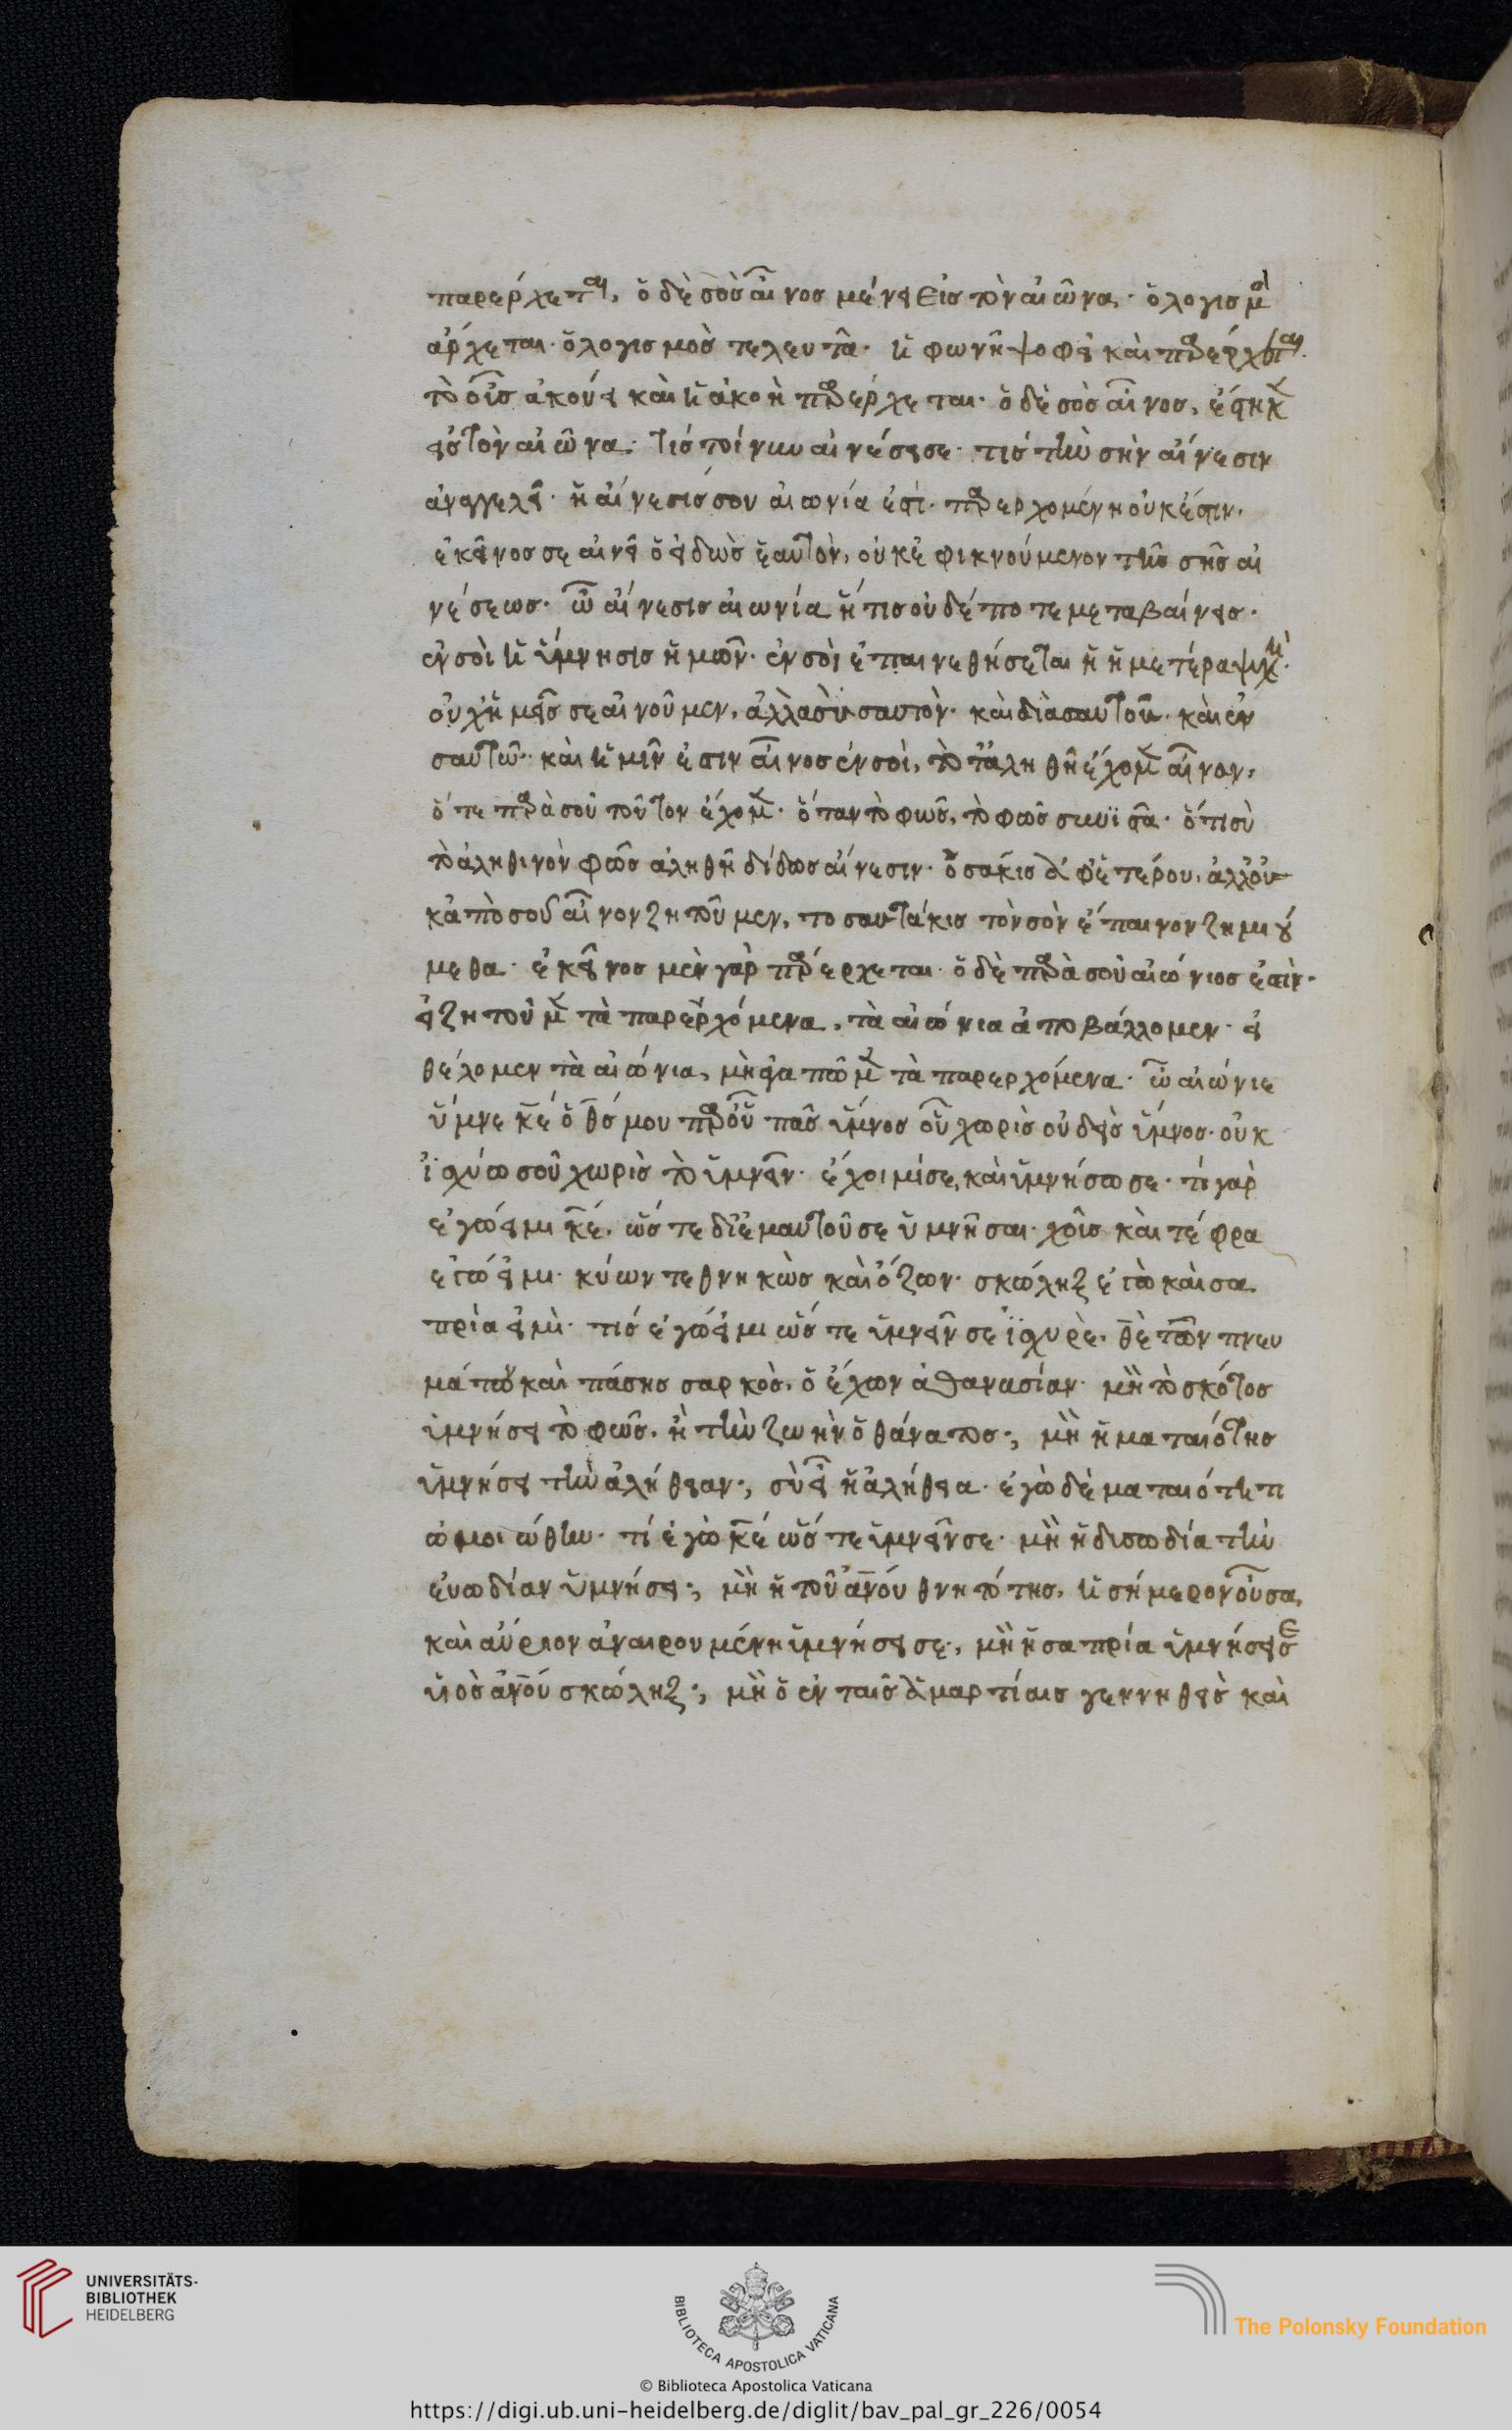 παρέρχεται, ὁ δὲ σὸς αἶνος μένει εἰς τὸν αἰῶνα· ὁ λογισμὸς
ἄρχεται· ὁ λογισμὸς τελευτᾶ· ἡ φωνὴ ψοφεῖ καὶ παρέρχεται·
τὸ οὖς ἀκούει καὶ ἡ ἀκοὴ παρέρχεται· ὁ δὲ σὸς αἶνος, ἕστηκεν
εἰς τὸν αἰῶνα· τίς τοίνυν αἰνέσει σε· τίς τὴν σὴν αἴνεσιν
ἀναγγελεῖ· ἡ αἴνεσίς σου αἰωνία ἐστί· παρερχομένη οὐκ ἔστιν·
ἐκεῖνος σε αἰνεῖ ὁ εἰδὼς ἑαυτὸν, οὐκ ἐφικνούμενον τῆς σῆς αἰ
νέσεως· ὦ αἴνεσις αἰωνία ἥτις οὐδέποτε μεταβαίνεις·
ἐν σοὶ ἡ ὕμνησις ἡμῶν· ἐν σοὶ ἐπαινεθήσεται ἡ ἡμετέρα ψυχὴ·
οὐχ ἡμεῖς σε αἰνοῦμεν, ἀλλὰ σὺ σαυτὸν· καὶ διὰ σαυτοῦ· καὶ ἐν
σαυτῶ· καὶ ἡμῖν ἐστιν αἶνος ἐν σοὶ, τότ' ἀληθῆ ἔχομεν αἶνον,
ὅτε παρὰ σοῦ τοῦτον ἔχομεν· ὅταν τὸ φῶς, τὸ φῶς συνιστᾶ· ὅτι σὺ
τὸ ἀληθινὸν φῶς ἀληθῆ δίδως αἴνεσιν· ὁσάκις ἀφ' ἑτέρου, ἀλλ' οὐ
κ' ἀπὸ σοῦ αἶνον ζητοῦμεν, τοσαυτάκις τὸν σὸν ἔπαινον ζημιού
μεθα· ἐκεῖνος μὲν γὰρ παρέρχεται· ὁ δὲ παρὰ σοῦ αἰώνιος ἐστὶν·
εἰ ζητοῦμεν τὰ παρερχόμενα, τὰ αἰώνια ἀποβάλλομεν· εἰ
θέλομεν τὰ αἰώνια, μὴ ἀγαπῶμεν τὰ παρερχόμενα· ὦ αἰώνιε
ὕμνε κ̅ε̅ ὁ θ̅ς̅ μου παρ' οὗ πᾶς ὕμνος οὗ χωρὶς οὐδεὶς ὕμνος· οὐκ
ἰσχύω σοῦ χωρὶς τὸ ὑμνεῖν· ἔχοιμί σε, καὶ ὑμνήσω σε· τί γὰρ
ἐγώ εἰμι κ̅ε̅, ὥστε δι' ἐμαυτοῦ σε ὑμνῆσαι· χοῦς καὶ τέφρα
ἐγώ εἰμι· κύων τεθνηκὼς καὶ ὄζων· σκώληξ ἐγὼ καὶ σα
πρία εἰμὶ· τίς ἐγώ εἰμι ὥστε ὑμνεῖν σε ἰσχυρὲ, θ̅ὲ τῶν πνευ
μάτων καὶ πάσης σαρκὸς, ὁ ἔχων ἀθανασίαν· μὴ τὸ σκότος
ὑμνήσει τὸ φῶς, ἢ τὴν ζωὴν ὁ θάνατος·, μὴ ἡ ματαιότης
ὑμνήσει τὴν ἀλήθειαν·, σὺ εἶ ἡ ἀλήθεια· ἐγὼ δὲ ματαιότητι
ὡμοιώθην· τί ἐγὼ κ̅ε̅ ὥστε ὑμνεῖν σε· μὴ ἡ δυσωδία τὴν
εὐωδίαν ὑμνήσει·, μὴ ἡ τοῦ ἀ̅ν̅ο̅υ̅ θνητότης, ἡ σήμερον οὖσα,
καὶ αὔριον ἀναιρουμένη ὑμνήσει σε·, μὴ ἡ σαπρία ὑμνήσει σε
υἱὸς ἀ̅ν̅ο̅υ̅ σκώληξ·, μὴ ὁ ἐν ταῖς ἁμαρτίαις γεννηθεὶς καὶ
UNIVERSITÄTS-
BIBLIOTHEK
HEIDELBERG
BIBLIOTECA APOSTOLICA VATICANA
The Polonsky Foundation
© Biblioteca Apostolica Vaticana
https://digi.ub.uni-heidelberg.de/diglit/bav_pal_gr_226/0054